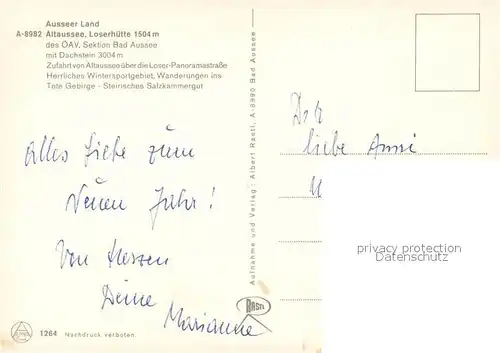 Ausseer Land
A-8982 Altaussee, Loserhütte 1504 m
des ÖAV, Sektion Bad Aussee
mit Dachstein 3004 m
Zufahrt von Altaussee über die Loser-Panoramastraße
Herrliches Wintersportgebiet, Wanderungen ins
Tote Gebirge - Steirisches Salzkammergut
Alles Liebe zum
Neuen Jahr!
Von Herzen
Deine
Marianne
1264 Nachdruck verboten.
Aufnahme und Verlag: Albert Rastl, A-8990 Bad Aussee
RASTL
liebe Anni
privacy protection
Datenschutz